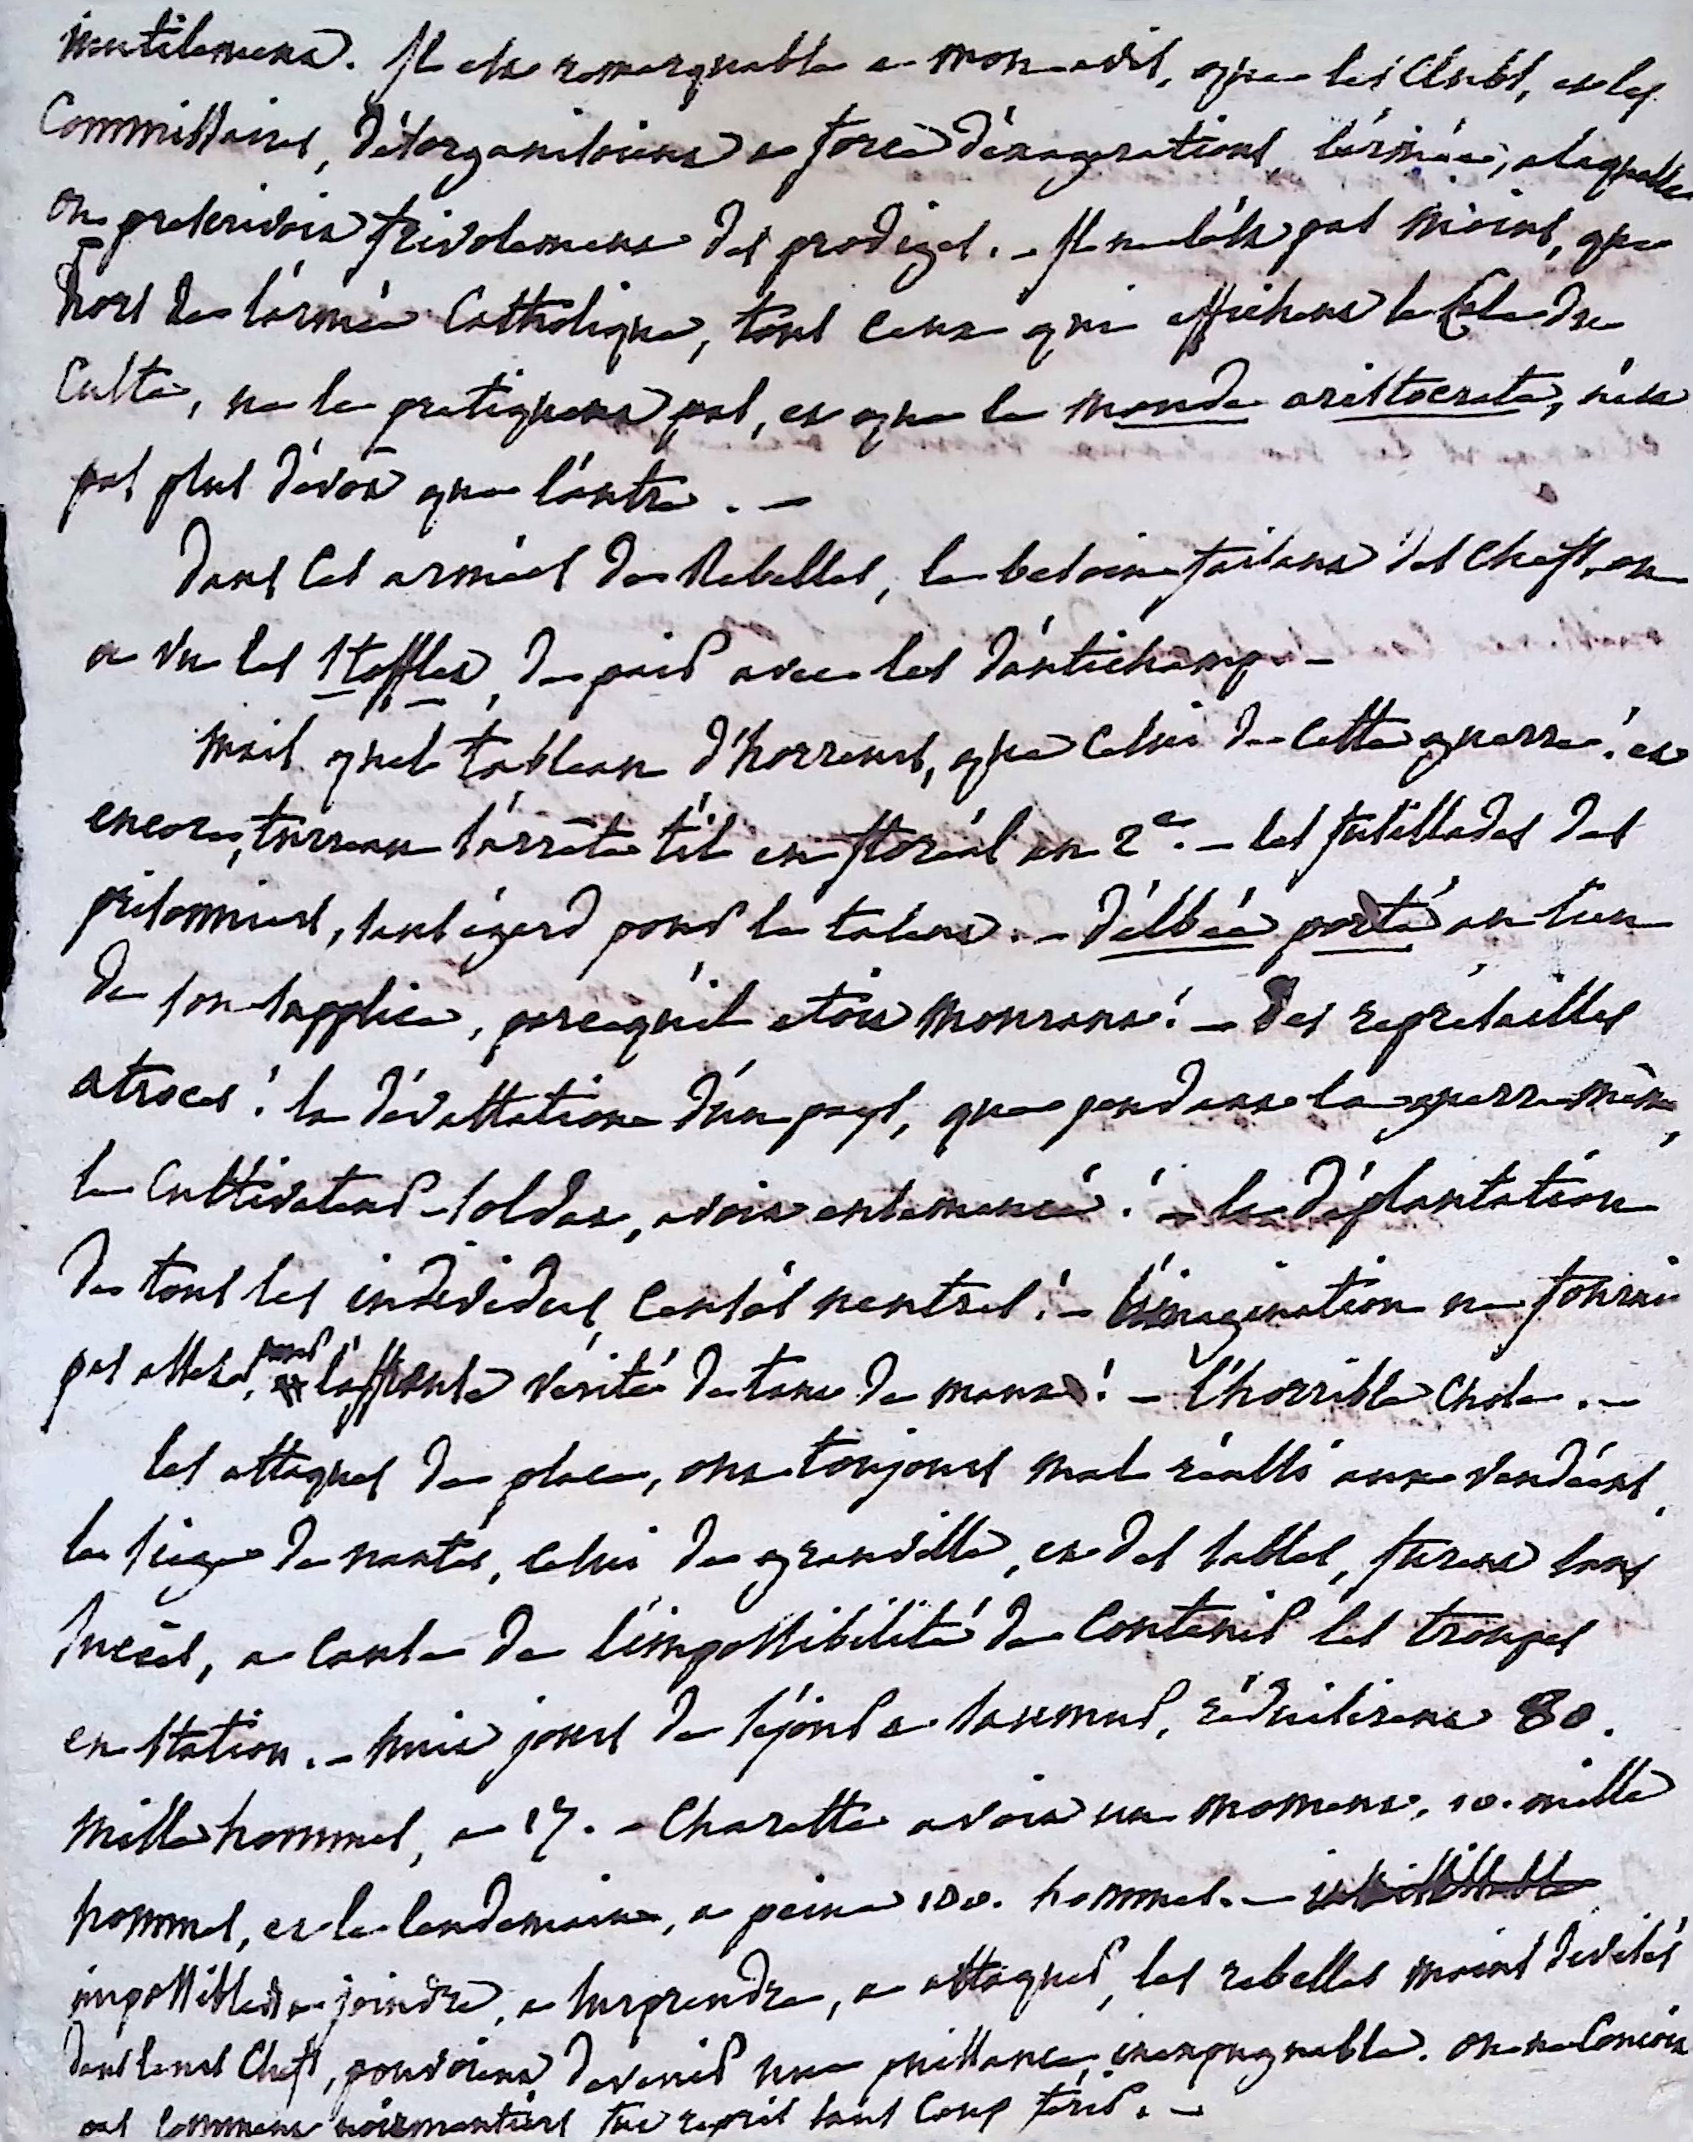 inutilement. Il est remarquable a mon avis, que les Clubs, et les
Commissaires, désorganisoient a force d'éxagerations, l'armée, a laquelle
on prescrivoit frivolement des prodiges. - Il n'est pas moins, que
hors de l'armée Catholique, tous ceux qui affichent le Zele du
Culte, ne le pratiquent pas, et que le monde aristocrate, n'est
pas plus dévot que l'autre. -
Dans ces armées de Rebelles, le besoin faisant des chefs, on
a vu les Stofflet, de pair avec les d'autichamp. -
Mais quel tableau d'horreurs, que celui de cette guerre! et
encore, turreau s'arrête t'il en floréal an 2e. - les fusillades des
prisonniers, sans égard pour le talent. - d'élbée porté au lieu
de son supplice, parcequ'il etoit mourant! - Des represailles
atroces! la dévastation d'un pays, que pendant la guerre même,
le Cultivateur-soldat, avoit ensemencé! - la déplantation
de tous les individus, censés neutres! - l'imagination ne fourni
pas assez, pour l'affreuse vérité de tant de maux! - l'horrible chose. -
les attaques de place, ont toujours mal réussi aux vendéens,
le siege de nantes, celui de granville, et des sables, furent sans
succès, a cause de l'impossibilité de contenir les troupes
en station. - huit jours de séjour a saumur, réduisirent 80.
mille hommes, a 17. - Charette avoit un moment, 10. mille
hommes, et le lendemain, a peine 100. hommes. -
impossibles a joindre, a surprendre, a attaquer, les rebelles moins divisés
dans leurs chefs, pouvoient devenir une puissance inexpugnable. on ne conçoit
pas comment noirmoutiers fut repris sans coup férir. -